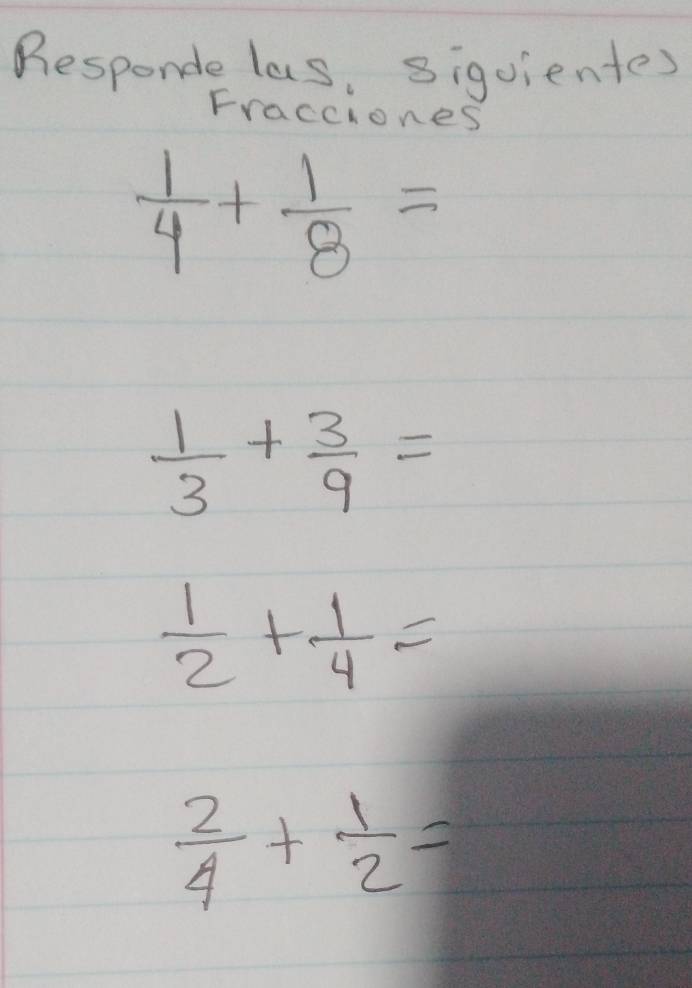 Responde las. siguientes
Fracciones
1/4 + 1/8 =
1/3 + 3/9 =
1/2 + 1/4 =
2/4 + 1/2 =